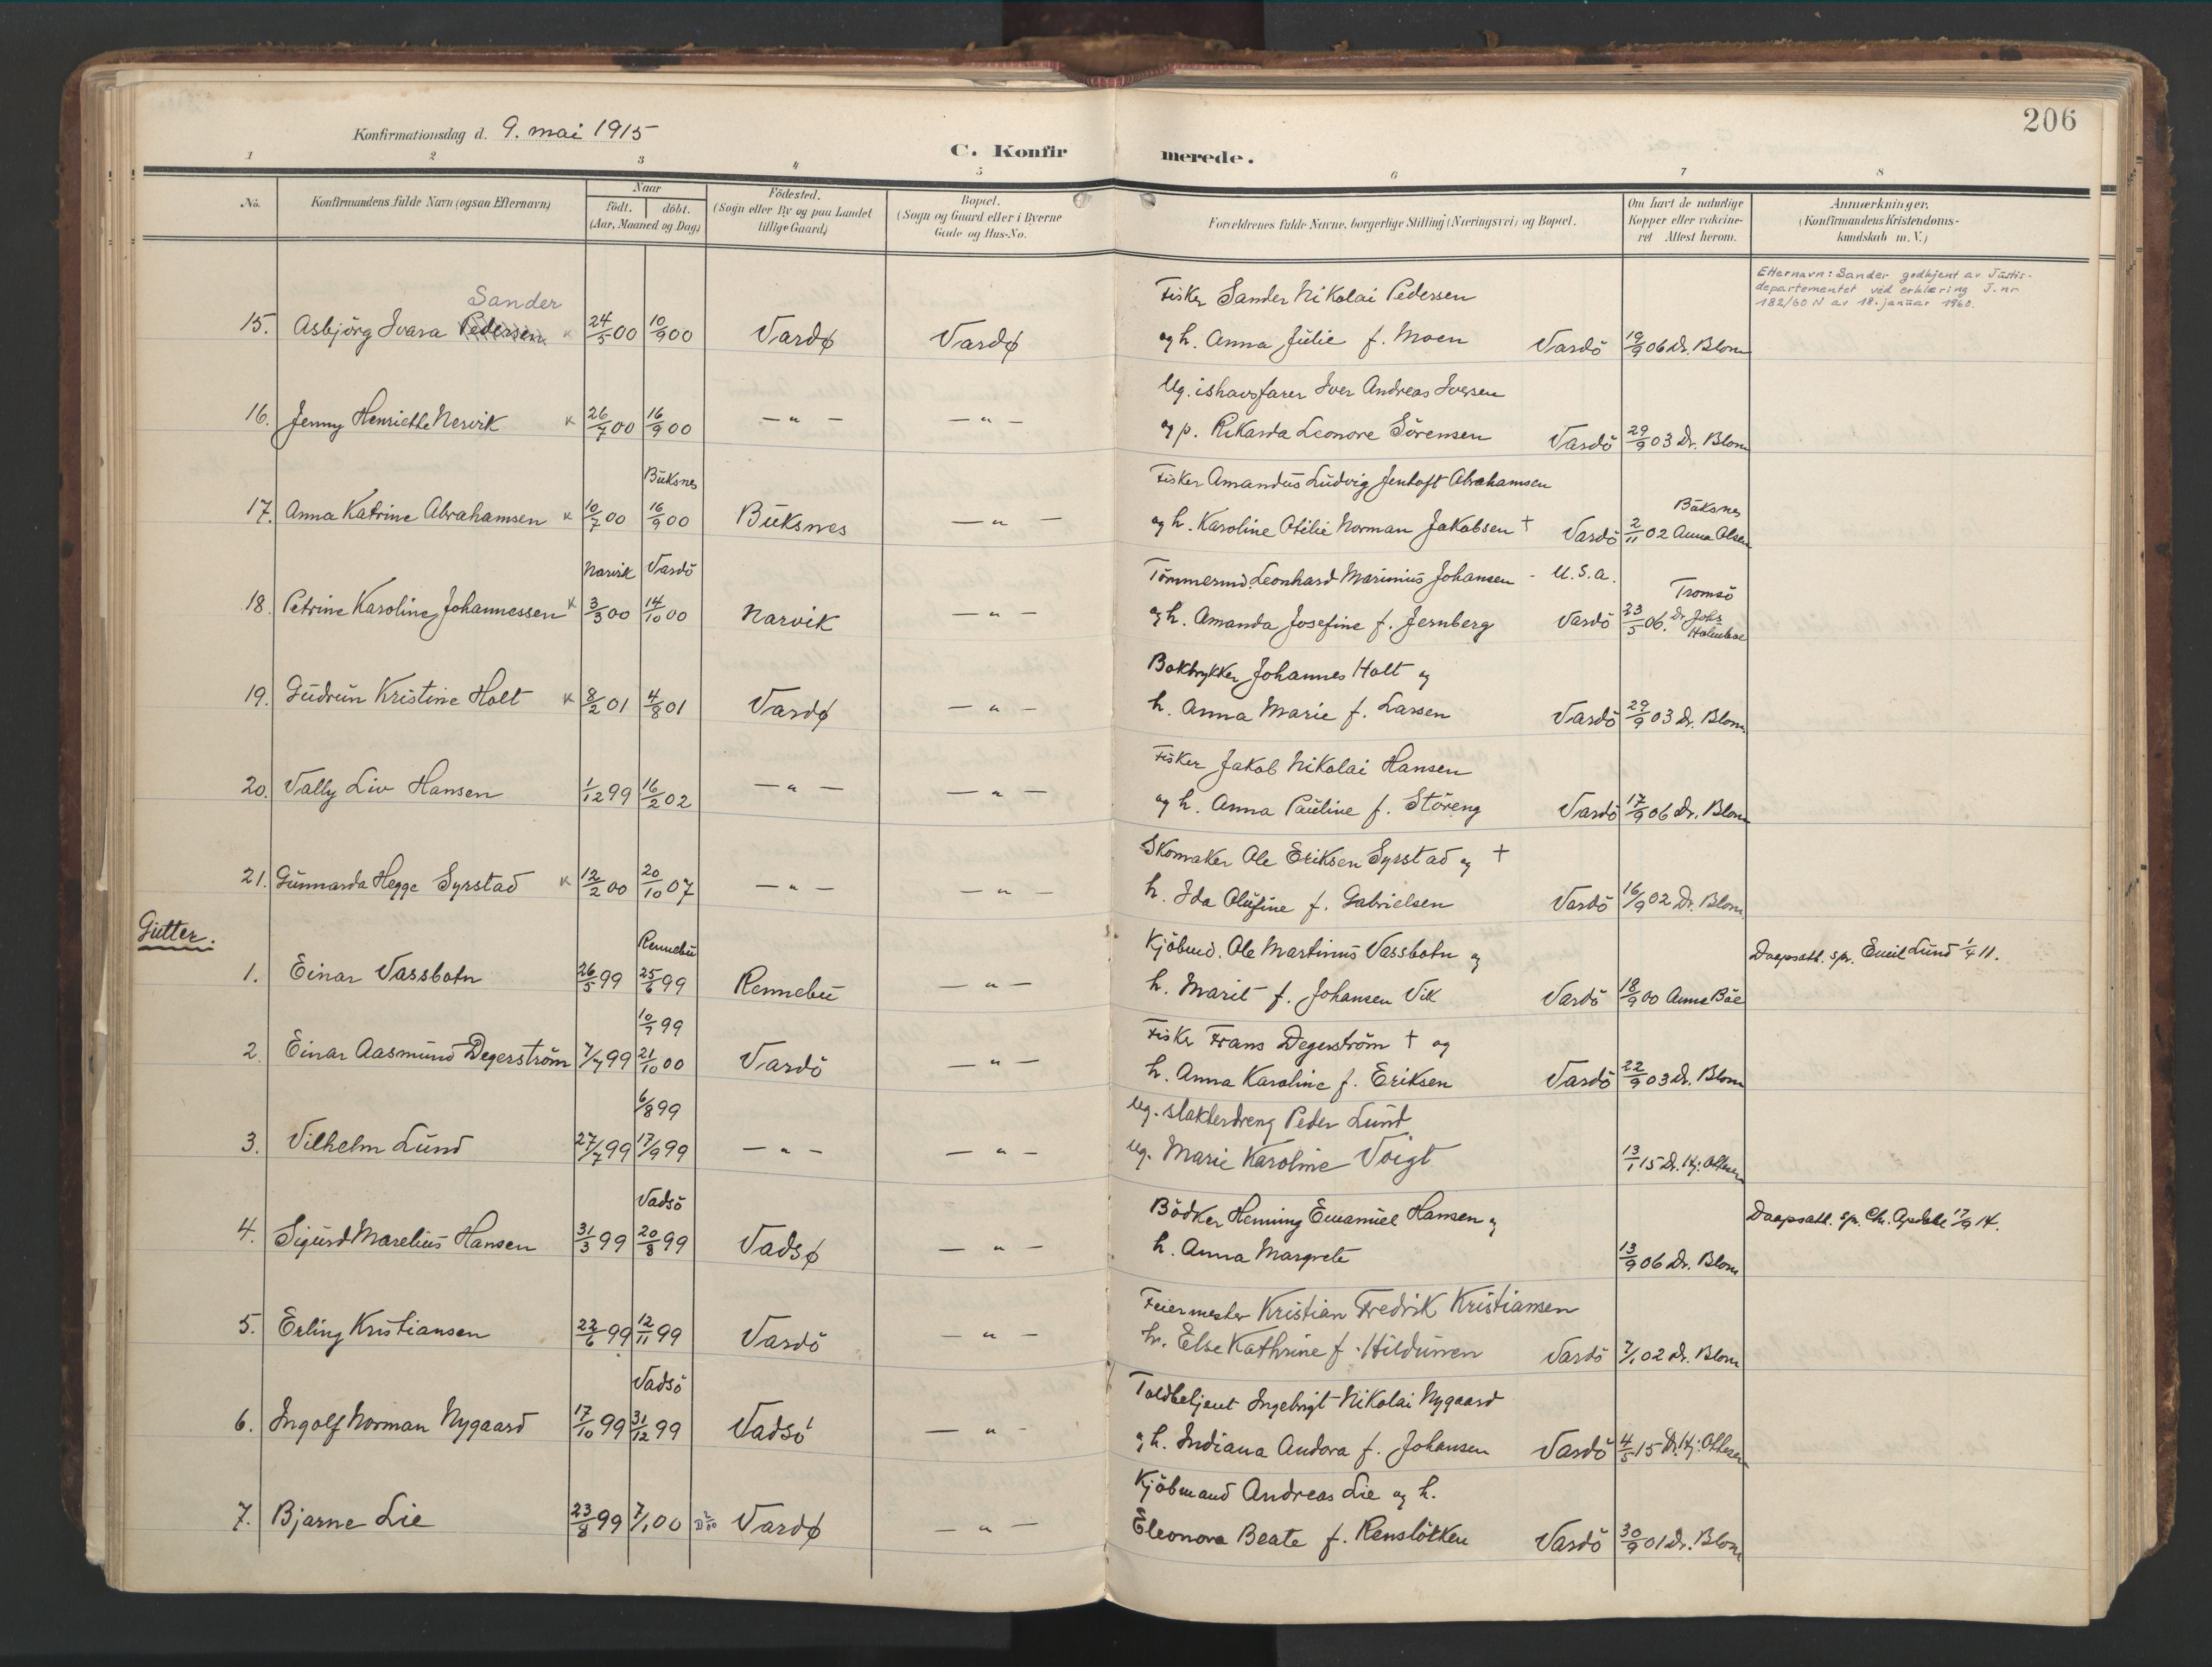 206
Konfirmationsdag d. 9. mai 1915
C. Konfirmerede.
1 2 3 4 5 6 7 8
No. Konfirmandens fulde Navn (ogsaa Efternavn) Naar født. døbt. (Aar, Maaned og Dag) Fødested. (Sogn eller By og paa Landet tillige Gaard) Bopæl. (Sogn og Gaard eller i Byerne Gade og Hus-No. Forældrenes fulde Navne, borgerlige Stilling (Næringsvei) og Bopæl. Om havt de naturlige Kopper eller vakcineret Attest herom. Anmærkninger. (Konfirmandens Kristendomskundskab m. V.)
Efternavn: Sander godkjent av Justis-
departementet ved erklæring J. nr
182/60 N av 18. januar 1960.
Sander Fisker Sander Nikolai Pedersen
15. Asbjörg Ivara Pedersen x 24/5 00 10/9 00 Vardø Vardø og h. Anna Julie f. Moen Vardö 19/9 06 Dr. Blom
Ug. ishavsfarer Iver Andreas Iversen
16. Jenny Henriette Nervik x 26/7 00 16/9 00 — " — — " — og p. Rikarda Leonore Sörensen Vardö 29/9 03 Dr. Blom
Buksnes Fisker Amandus Ludvig Jentoft Abrahamsen Buksnes
17. Anna Katrine Abrahamsen x 10/7 00 16/9 00 Buksnes — " — og h. Karoline Otilie Norman Jakobsen † Vardö 2/11 02 Anna Olsen
Narvik Vardö Tömmermd. Leonhard Marinius Johansen - U.S.a. Tromsö
18. Petrine Karoline Johannessen x 3/3 00 14/10 00 Narvik — " — og h. Amanda Josefine f. Jernberg Vardö 23/5 06. Dr Johs Holmboe
Boktrykker Johannes Holt og
19. Gudrun Kristine Holt x 8/2 01 4/8 01 Vardø — " — h. Anna Marie f. Larsen Vardö 29/9 03 Dr. Blom
Fisker Jakob Nikolai Hansen
20. Vally Liv Hansen 1/12 99 16/2 02 — " — — " — og h. Anna Pauline f. Störeng Vardö 17/9 06 Dr. Blom
Skomaker Ole Eriksen Syrstad og †
21. Gunnarda Hegge Syrstad x 12/2 00 20/10 07 — " — — " — h. Ida Olufine f. Gabrielsen Vardö 16/9 02 Dr. Blom
Gutter.
Rennebu Kjöbmd. Ole Martinus Vassbotn og Daapsatt. spr. Emil Lund 1/4 11.
1. Einar Vassbotn 26/5 99 25/6 99 Rennebu — " — h. Marit f. Johansen Vik Vardö 18/9 00 Anna Böe
10/7 99 Fisker Frans Degerström † og
2. Einar Aasmund Degerström 7/7 99 21/10 00 Vardö — " — h. Anna Karoline f. Eriksen Vardö 22/9 03 Dr. Blom
6/8 99 Ug. slakterdreng Peder Lund
3. Vilhelm Lund 27/7 99 17/9 99 — " — — " — Ug. Marie Karoline Voigt 13/1 15 Dr. Hj. Ottesen
Vadsö Bödker Henning Emanuel Hansen og Daapsatt. spr. Ch. 17/9 14.
4. Sigurd Marelius Hansen 31/3 99 20/8 99 Vadsø — " — h. Anna Margrete 13/9 06 Dr. Blom
Feiermester Kristian Fredrik Kristiansen
5. Erling Kristiansen 22/6 99 12/11 99 Vardö — " — h. Else Kathrine f. Vardö 7/1 02 Dr. Blom
Vadsö Toldbetjent Ingebrigt Nikolai Nygaard
6. Ingolf Norman Nygaard 17/10 99 31/12 99 Vadsö — " — og h. Indiana Andora f. Johansen Vardö 4/5 15 Dr. Hj. Ottesen
Kjöbmand Andreas Lie og h.
7. Bjarne Lie 23/8 99 7/1 00 Vardø — " — Eleonora Beate f. Renslökken Vardö 30/9 01 Dr. Blom